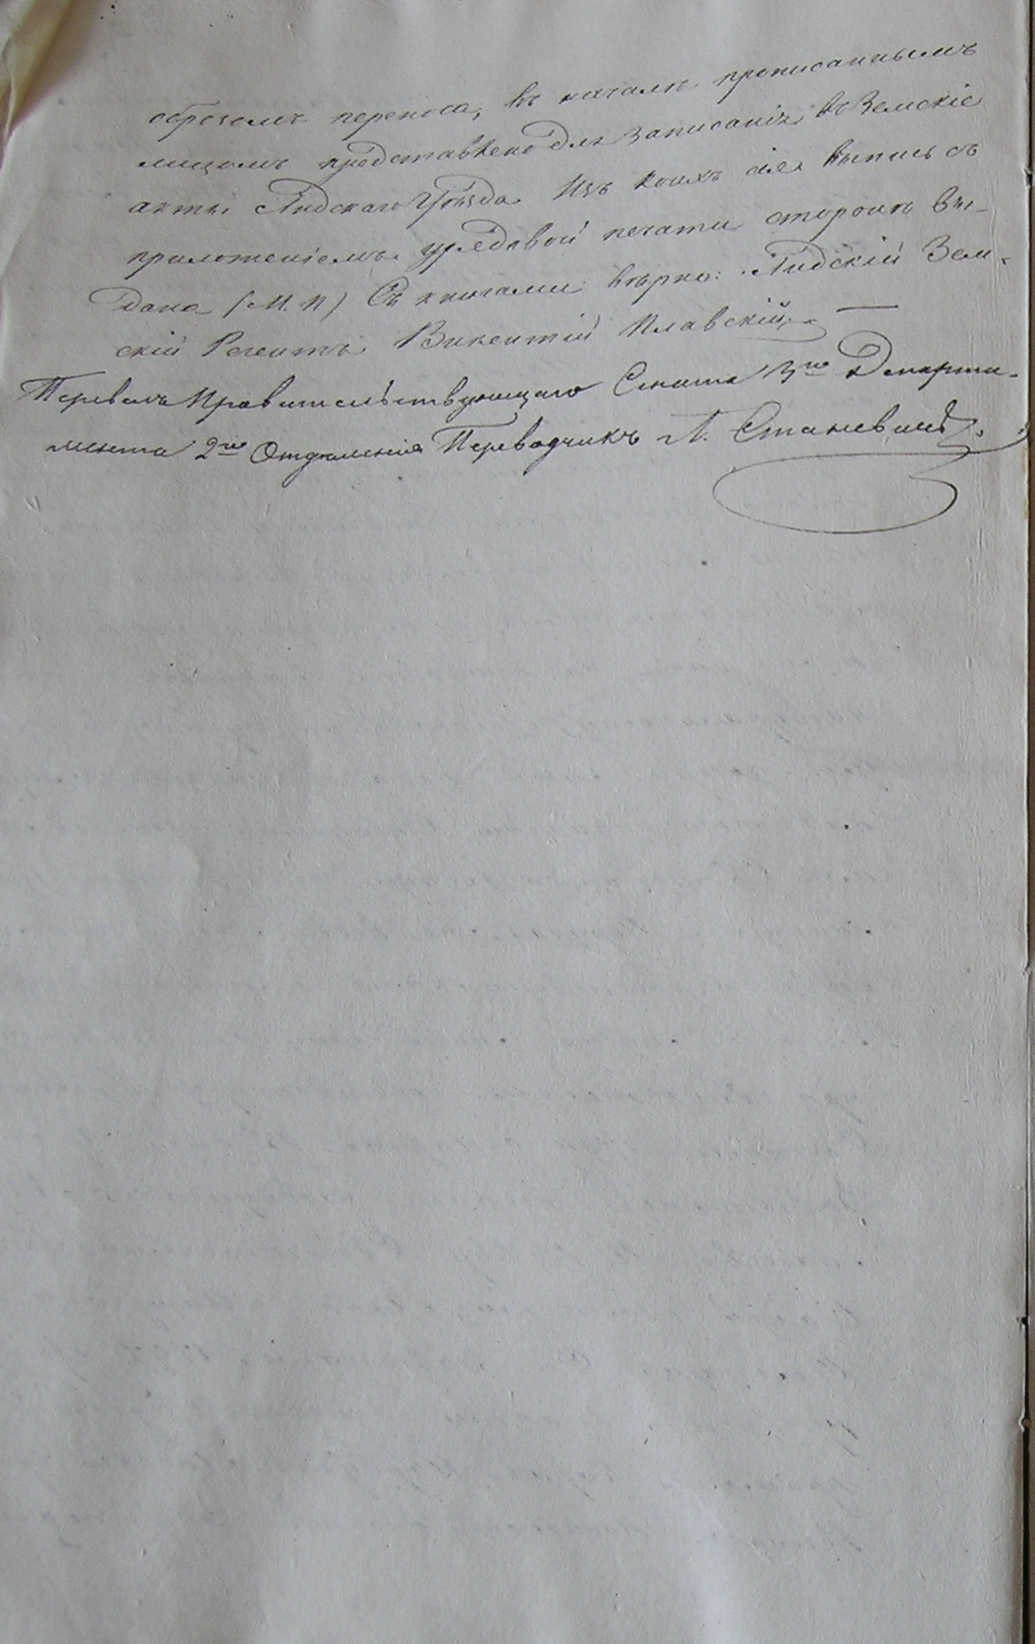 образомъ переноса, въ началѣ прописаннымъ
лицомъ представлено для записанія въ Земскіе
акты Лидскаго Уѣзда. Изъ коихъ сія выпись съ
приложеніемъ урядовой печати сторонѣ вы-
дана (М. П.) Съ книгами вѣрно: Лидскій Зем-
скій Регентъ Викентій Илавскій. —
Перевелъ Правительствующаго Сената 3го Департа-
мента 2го Отдѣленія Переводчикъ Л. Станевичъ.